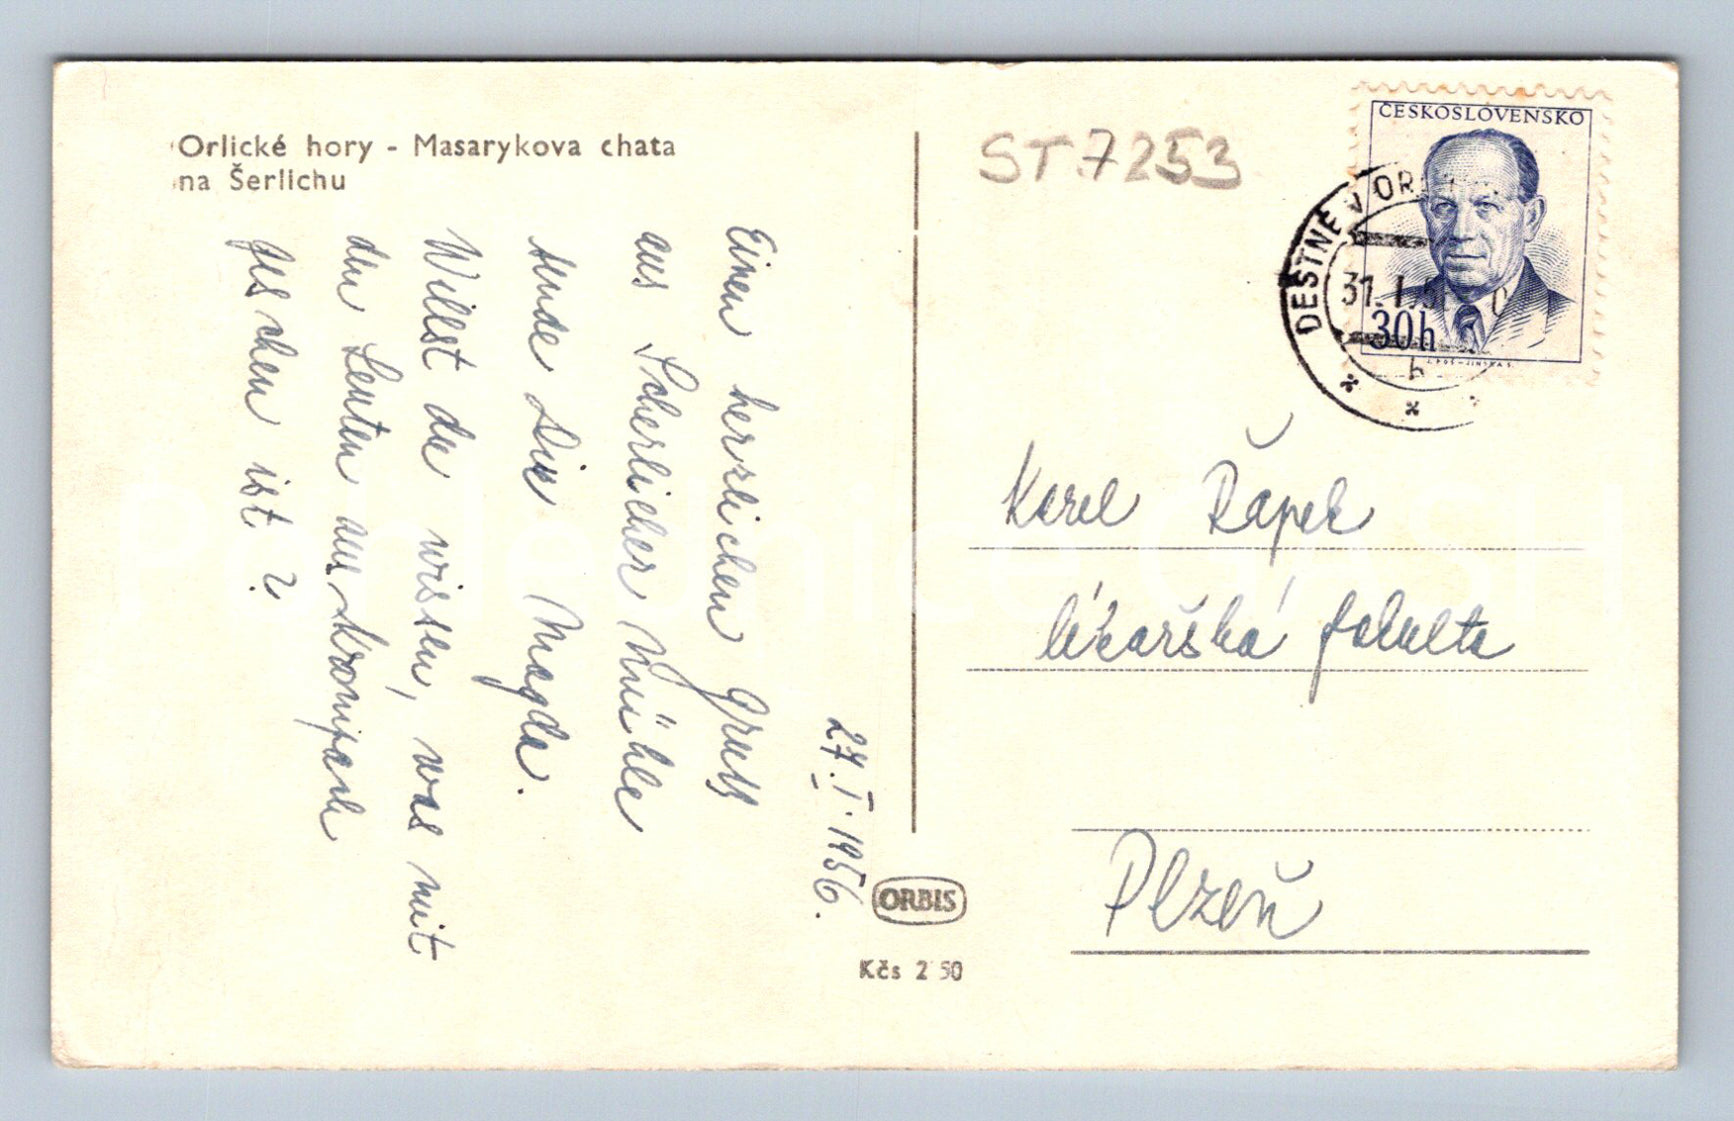 Orlické hory - Masarykova chata
na Šerlichu
ST 7253
ČESKOSLOVENSKO
30h
DEŠTNÉ V OR
31. I. 5
b
27. I. 1956.
Einen herzlichen Gruss
aus Scherlicher Mühle
sende Dir Magda.
Willst du wissen, was mit
den Leuten aus
geschen ist?
Karel Řápek
lékařská fakulta
Plzeň
ORBIS
Kčs 2.50
Pohlednice CASH